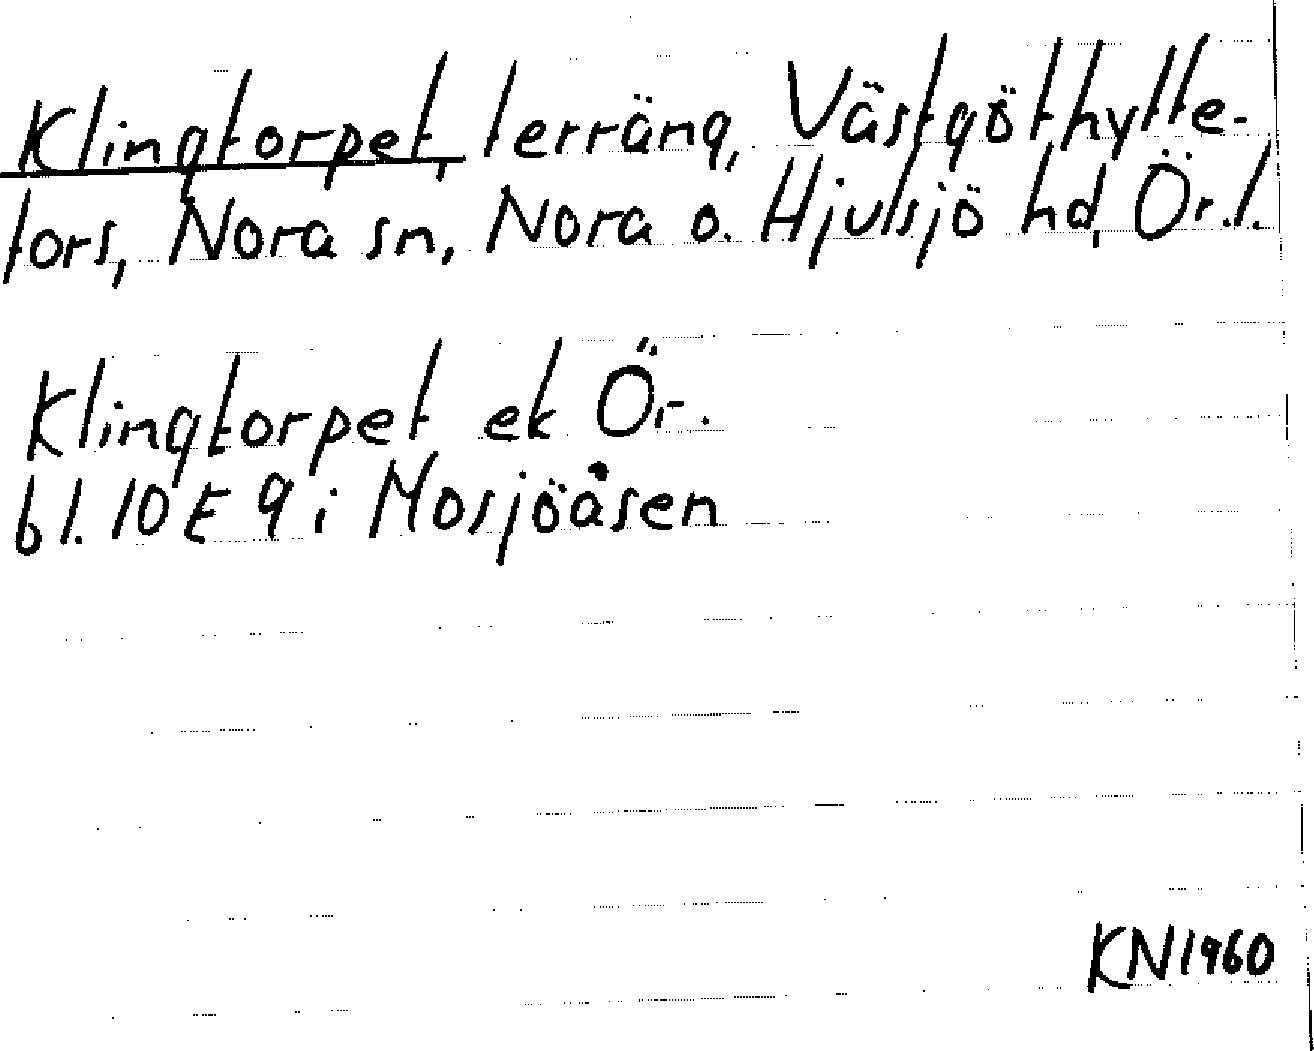 Klingtorpet, terräng, Västgöthytte-
fors, Nora sn, Nora o. Hjulsjö hd, Ör.l.
Klingtorpet ek Ör.
bl. 10 E 9 i Mosjöåsen
KN1960